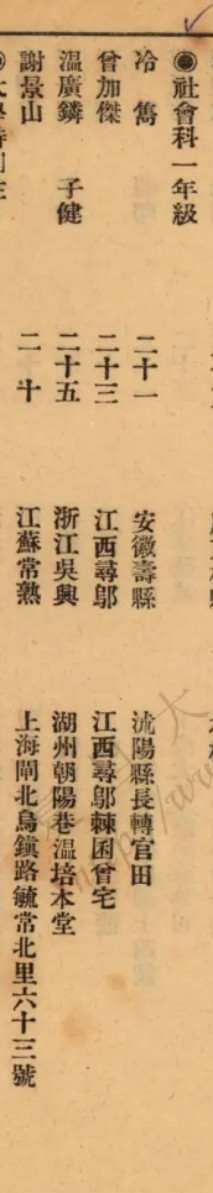 ●社會科一年級
冷雋 二十一 安徽壽縣 沭陽縣長轉官田
曾加傑 二十三 江西尋鄔 江西尋鄔棘囲曾宅
溫廣鏻 子健 二十五 浙江吳興 湖州朝陽巷溫培本堂
謝景山 二十 江蘇常熟 上海閘北烏鎭路毓常北里六十三號